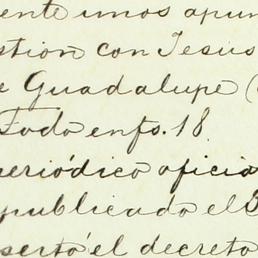 ente unos apun
stion con Jesus
e Guadalupe (
Todo enfs. 18.
periódico oficia
publicado el 3
sertó el decreto